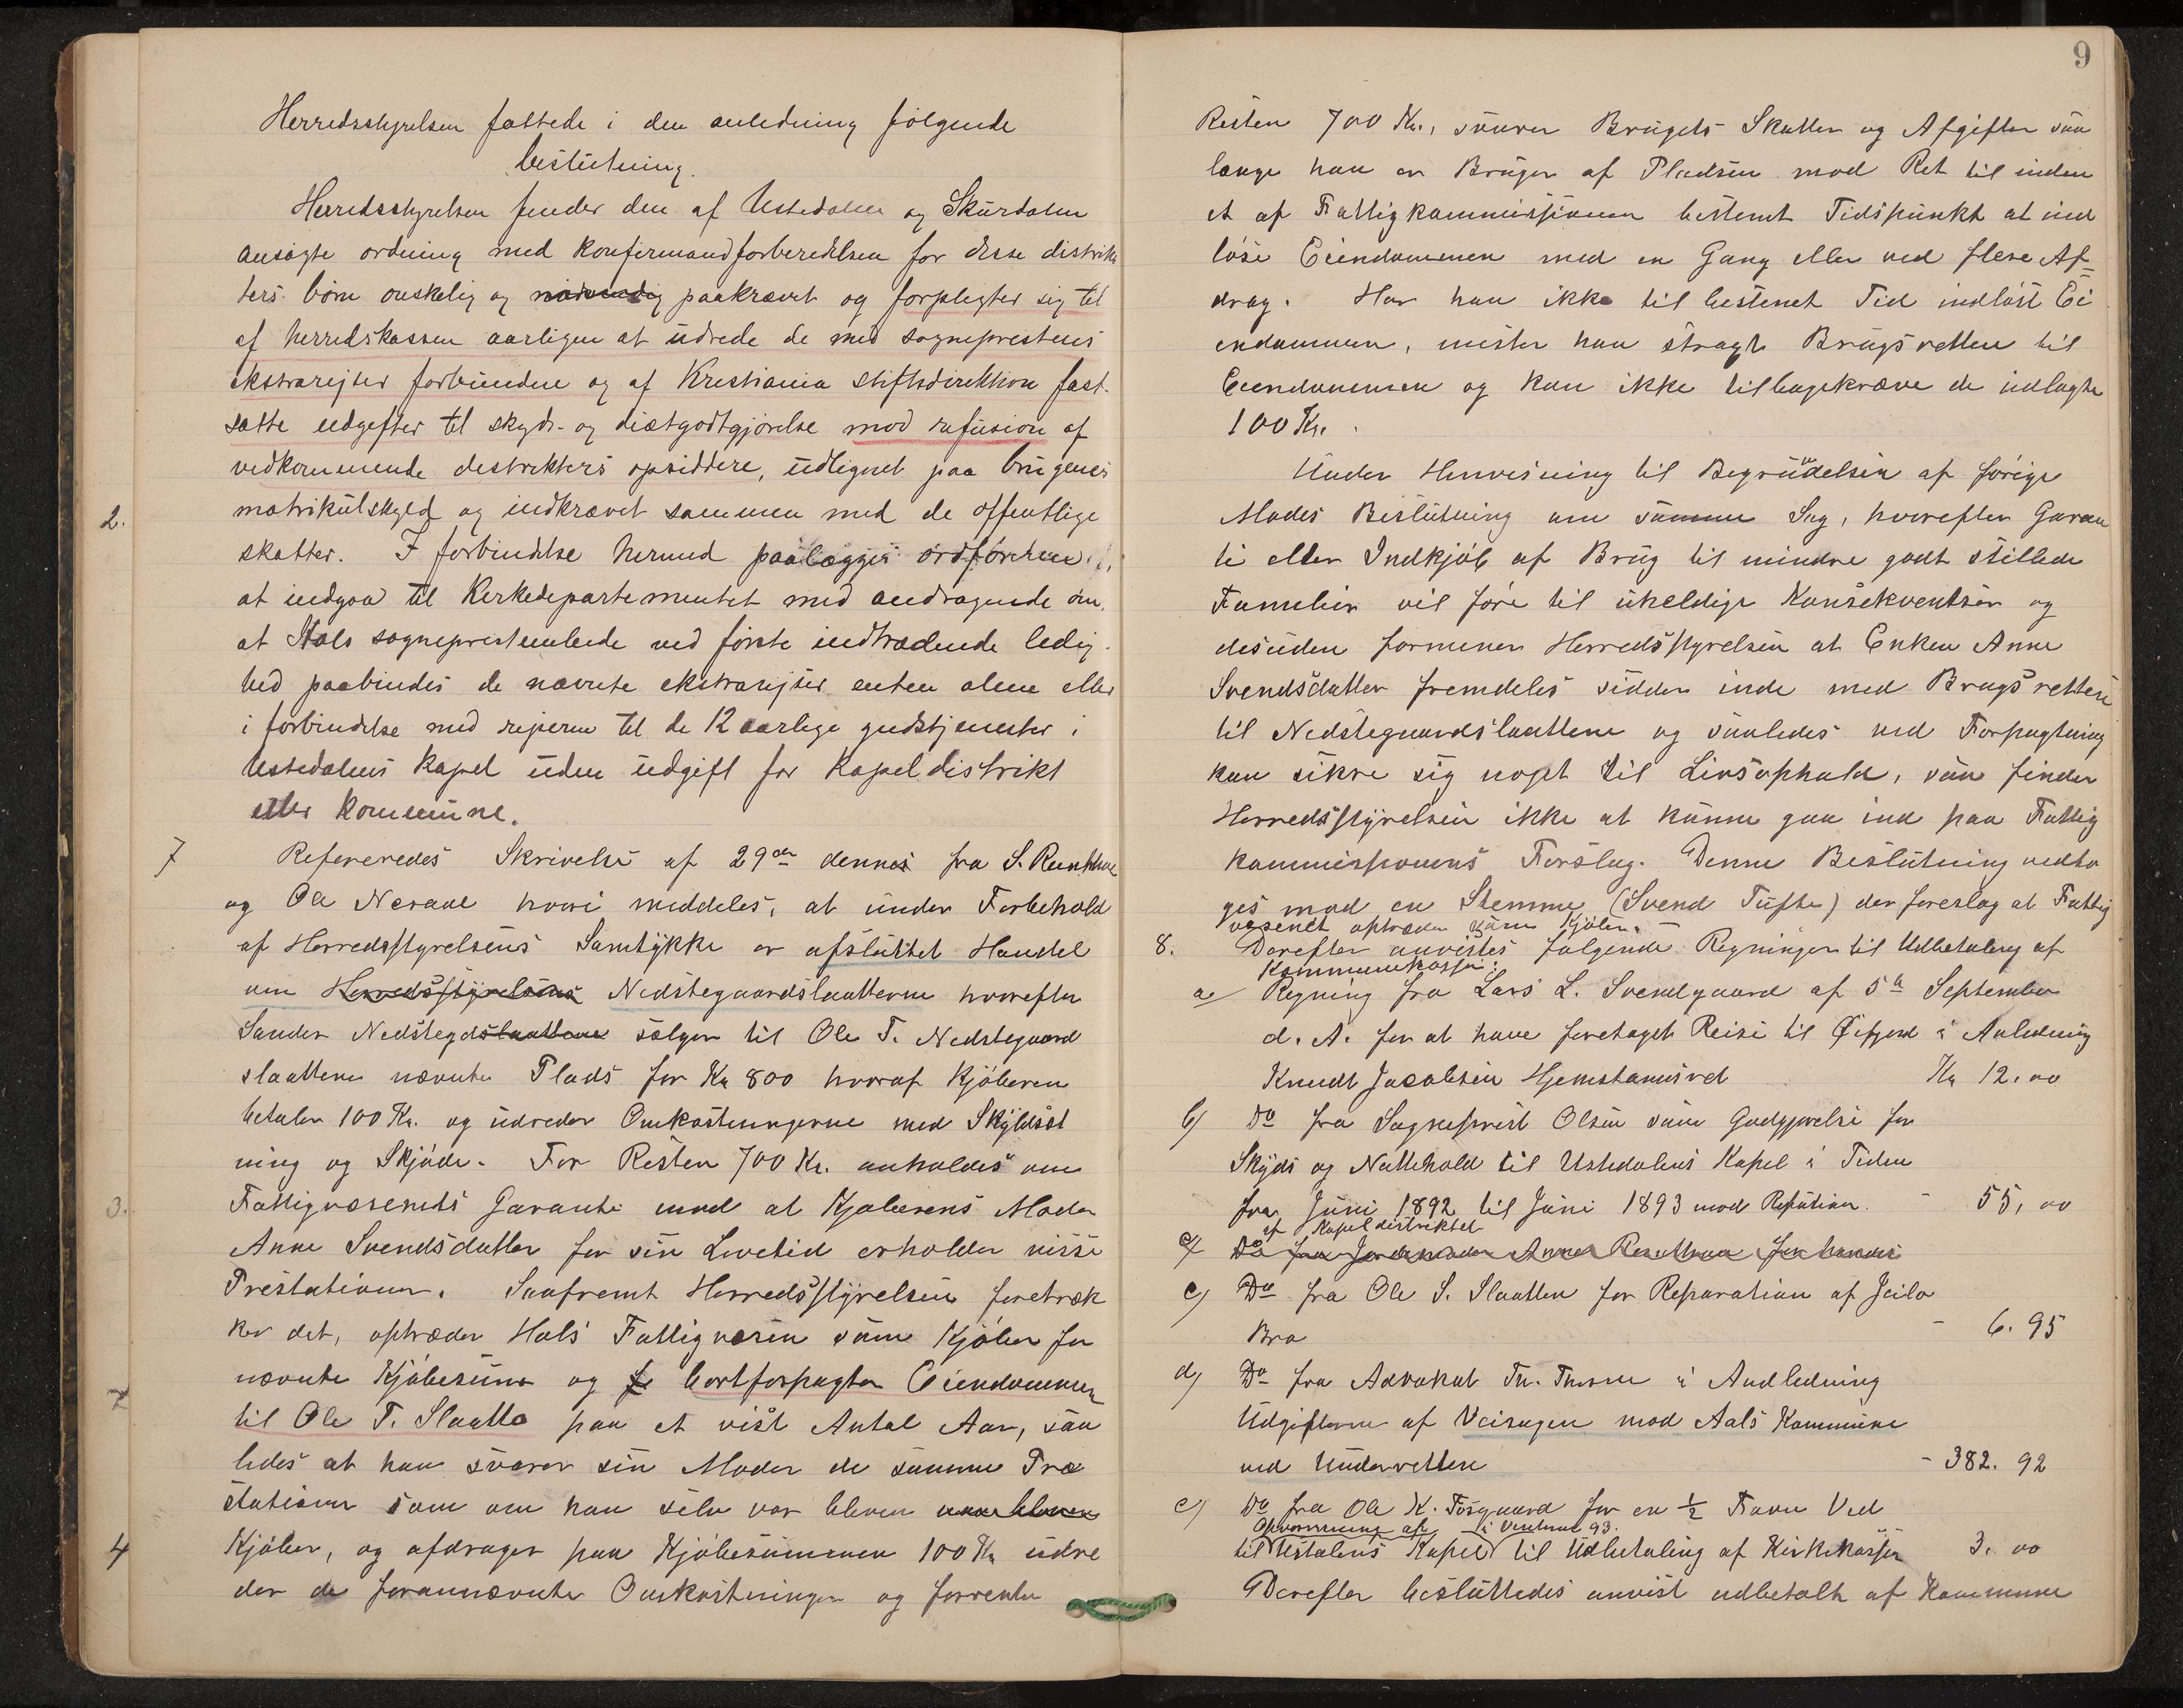 Herredsstyrelsen fattede i den anledning følgende
beslutning.
Herredsstyrelsen finder den af Ustedalen og Skurdalen
ansøgte ordning med konfirmandforberedelsen for disse distrik
ters børn ønskelig og nødvendig paakrævet og forpligter sig til
af herredskassen aarligen at udrede de med sogneprestens
ekstrarejser forbundne og af Kristiania stiftsdirektion fast-
satte udgifter til skyds- og diætgodtgjørelse mod refusion af
vedkommende distrikters opsiddere, udlignet paa brugenes
2.
matrikulskyld og indkrævet sammen med de offentlige
skatter. I forbindelse hermed paalægges ordføreren
at indgaa til Kirkedepartementet med andragende om,
at Hols sogneprestembede ved første indtrædende ledig-
hed paabindes de nævnte ekstrarejser enten alene eller
i forbindelse med rejserne til de 12 aarlige gudstjenester i
Ustedalens kapel uden udgift for kapeldistrikt
eller kommune.
7
Refereredes Skrivelse af 29de dennes fra S.
og Ole Neraal hvori meddeles, at under Forbehold
af Herredsstyrelsens Samtykke er afsluttet Handel
om Herredsstyrelsens Nedstegaardslaatterne hvorefter
Sander Nedstegdslaattene sælger til Ole T. Nedstegaard
slaattene nævnte Plads for Kr 800 hvoraf Kjøberen
betaler 100 Kr. og udreder Omkostningerne med Skyldsæt
ning og Skjøde. For Resten 700 Kr. anholdes om
3.
Fattigvæsenets Garanti mod at Kjøberens Moder
Anne Svendsdatter for sin Levetid erholder visse
Præstationer. Saafremt Herredsstyrelsen foretræk
ker det, optræder Hols Fattigvæsen som Kjøber for
nævnte Kjøbesum og bortforpagter Eiendommen
til Ole T. Slaatto paa et vist Antal Aar, saa
ledes at han svarer sin Moder de samme Præ
stationer som om han selv var bleven
4
Kjøber, og afdrager paa Kjøbesummen 100 Kr udre
der de forannævnte Omkostninger og forrenter
9
Resten 700 Kr., svarer Brugets Skatter og Afgifter saa
længe han er Bruger af Pladsen mod Ret til inden
et af Fattigkommissionen bestemt Tidspunkt at ind
løse Eiendommen med en Gang eller ved flere Af=
drag. Har han ikke til bestemt Tid indløst Ei
endommen, mister han stragt Brugsretten til
Eiendommen og kan ikke tilbagekræve de udlagte
100 Kr.
Under Henvisning til Begrundelsen af forige
Mødes Beslutning om samme Sag, hvorefter Garan
ti eller Indkjøb af Brug til mindre godt stillede
Familier vil føre til uheldige Konsekventser og
desuden formener Herredsstyrelsen at Enken Anne
Svendsdatter fremdeles sidder inde med Brugsretten
til Nedstegaardslaattene og saaledes ved Forpagtning
kan sikre sig noget til Livsophold, saa finder
Herredsstyrelsen ikke at kunne gaa ind paa Fattig
kommissionens Forslag. Denne Beslutning vedto
ges mod en Stemme (Svend Tufte) der foreslog at Fattig
væsenet optræder som Kjøber.
8.
Derefter anvistes følgende Regninger til Udbetaling af
Kommunekassen:
a/ Regning fra Lars L. Svendgaard af 5te September
d. A. for at have foretaget Reise til Øifjord i Anledning
Knudt Jacobsen Hjemstamsret Kr 12.00
b) Do fra Sogneprest Olsen som Godgjørelse for
Skyds og Nattehold til Ustedalens Kapel i Tiden
fra Juni 1892 til Juni 1893 mod Refusion - 55,00
af Kapeldistriktet
c) Do fra Jordemoder Anne
c) Do fra Ole S. Slaatten for Reparation af Jeilo
Bro - 6.95
d) Do fra Advokat Th. i Andledning
Udgifterne af Veisagen mod Aals Kommune
ved Underretten - 382.92
e) Do fra Ole K. Tosgaard for en 1/2 Favn Ved
Opvarmning af i Vinteren 93.
til Ustalens Kapel til Udbetaling af Kirkekassen 3.00
Derefter besluttedes anvist udbetalt af Kommune